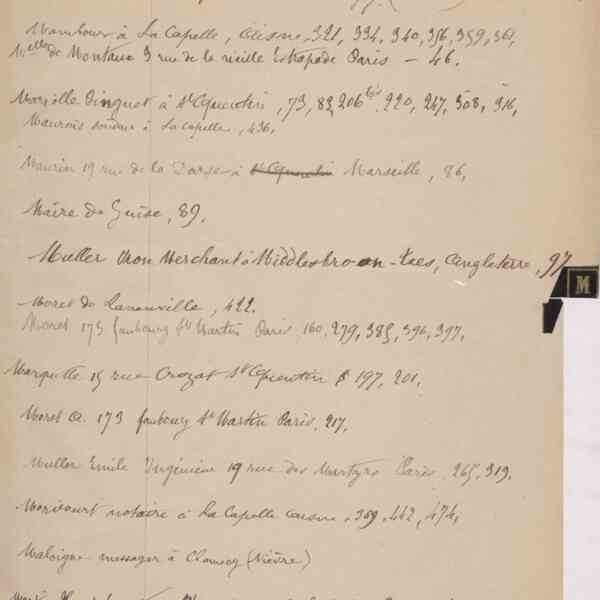 Mambour à La Capelle, Aisne, 321, 334, 340, 356, 359, 361,
Melle de Montaux 9 rue de la vieille Estrapade Paris - 46.
à St Quentin, 73, 83, 206 bis, 220, 247, 308, 316,
à La Capelle, 436,
Maurin 19 rue de la Darse à St Quentin Marseille, 86,
Maire de Guise, 89,
Muller Iron Merchant à Middlesbro-on-tees, Angleterre, 97
M
Moret de, 422.
Moret 173 faubourg St Martin Paris, 160, 279, 385, 396, 397,
Marquette 15 rue Crozat St Quentin, 197, 201,
Moret A. 173 faubourg St Martin Paris, 217,
Muller Emile Ingénieur 19 rue des Martyrs Paris, 265, 319.
Moricourt notaire à La Capelle Aisne, 369, 442, 474,
Maloigne messager à Clamecy (Nièvre)